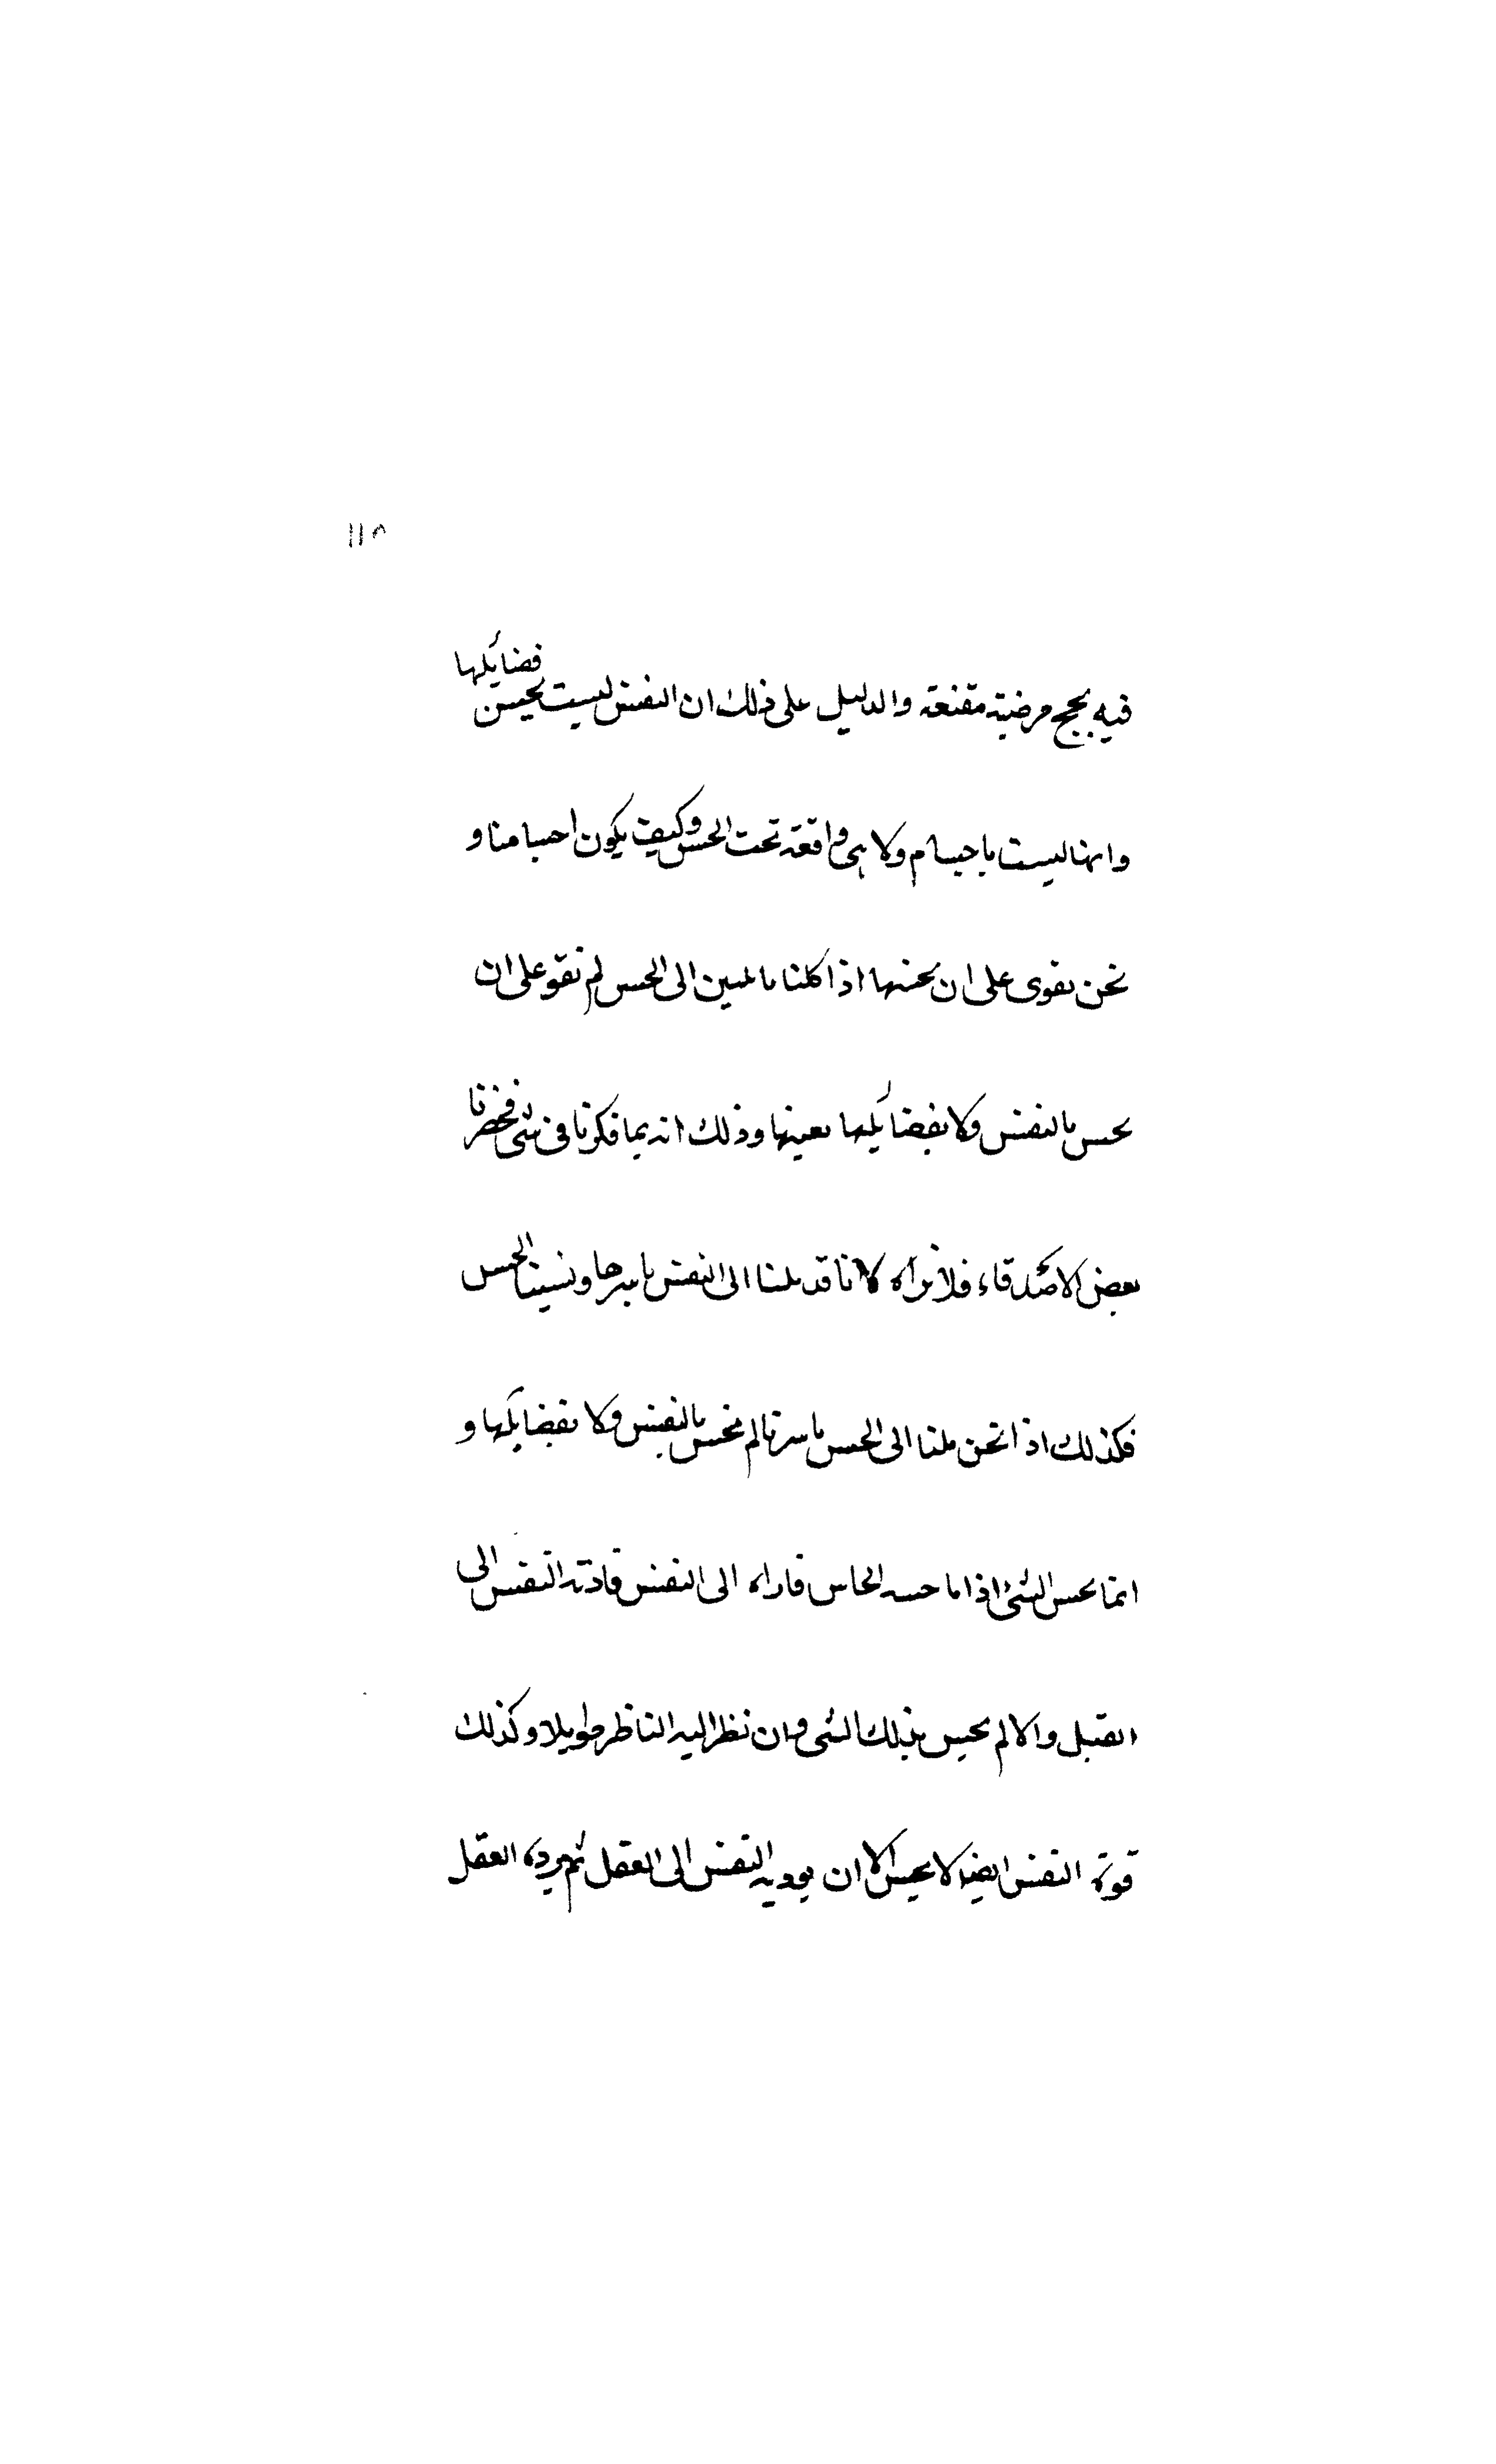 ١١٨
فضائلها
فيه بحجج مرضية مقنعة والدليل على ذلك ان النفس ليست بحس
وانها ليست باجسام ولا هى واقعة تحت الحس وكيف يكون احساسنا و
نحن نقوى على ان نحسها اذا كلنا مائلين الى الحس لم نقو على ان
نحس بالنفس ولا بفضائلها بعينها وذلك انه ربما فكرنا فى شى فحضرنا
بعض الاصدقاء فلا نراه لانا قد ملنا الى النفس باسرها ونسينا الحس
فكذلك اذا نحن ملنا الى الحس باسرنا لم نحس بالنفس ولا بفضائلها و
انما نحس الشئ اذا ما حسه الحاس فاداه الى النفس فادته النفس الى
العقل والا لم نحس بذلك الشى وان نظر اليه الناظر طويلا وكذلك
قوة النفس ايضا لا يحس الا ان يوديه النفس الى العقل ثم يرده العقل